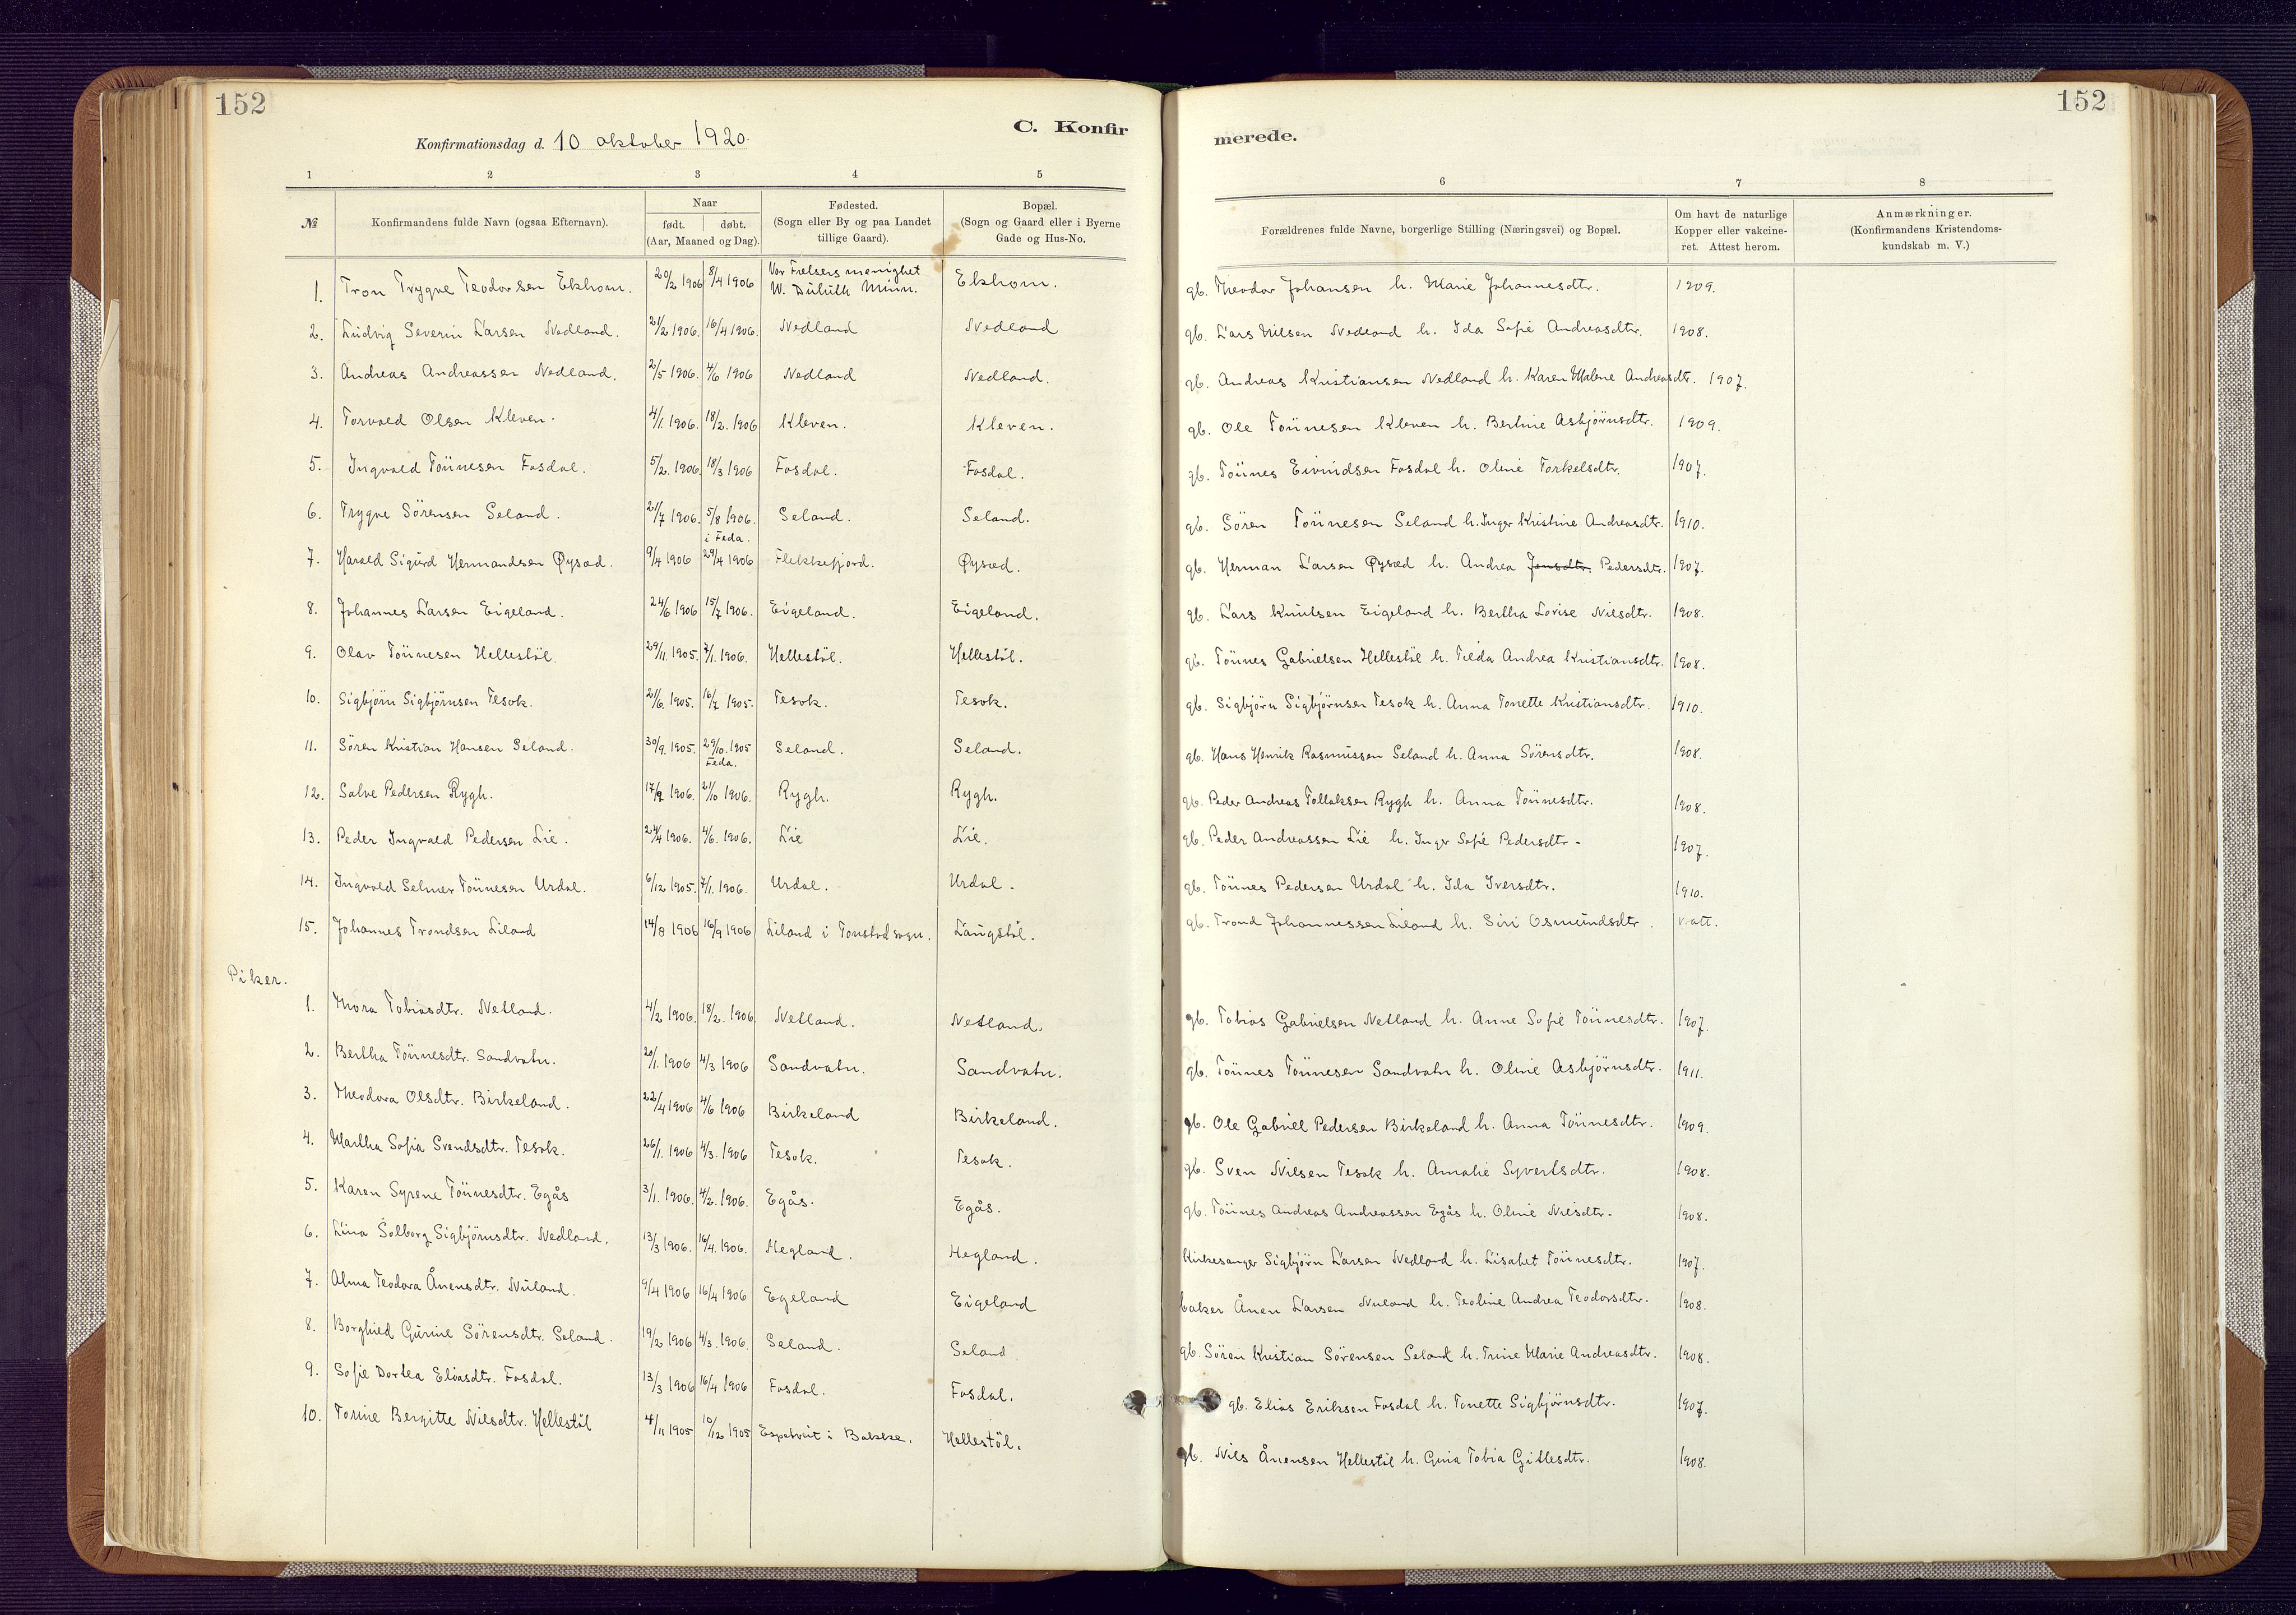 152
152
C. Konfir
merede.
Konfirmationsdag d. 10 oktober 1920.
1 2 3 4 5 6 7 8
№ Konfirmandens fulde Navn (ogsaa Efternavn). Naar født. døbt. (Aar, Maaned og Dag). Fødested. (Sogn eller By og paa Landet tillige Gaard). Bopæl. (Sogn og Gaard eller i Byerne Gade og Hus-No. Forældrenes fulde Navne, borgerlige Stilling (Næringsvei) og Bopæl. Om havt de naturlige Kopper eller vakcineret. Attest herom. Anmærkninger. (Konfirmandens Kristendomskundskab m. V.)
1. Tron Trygve Teodorsen Ekhom. 20/2 1906 8/4 1906 Vor Frelsers menighet W. Duluth Minn. Ekhom. gb. Theodor Johansen h. Marie Johannesdtr. 1909.
2. Ludvig Severin Larsen Nedland. 21/2 1906. 16/4 1906. Nedland Nedland gb. Lars Nilsen Nedland h. Ida Sofie Andreasdtr. 1908.
3. Andreas Andreassen Nedland. 2/5 1906. 4/6 1906 Nedland Nedland. gb. Andreas Kristiansen Nedland h. Karen Malene Andreasdtr. 1907.
4. Torvald Olsen Kleven. 4/1. 1906. 18/2. 1906 Kleven. Kleven. gb. Ole Tönnesen Kleven h. Bertine Asbjörnsdtr. 1909.
5. Ingvald Tönnesen Fosdal. 5/2. 1906. 18/3 1906 Fosdal. Fosdal. gb. Tönnes Eivindsen Fosdal h. Oline Torkelsdtr. 1907.
6. Trygve Sörensen Seland. 21/7 1906. 5/8 1906. i Feda. Seland. Seland. gb. Sören Tönnesen Seland h. Inger Kristine Andreasdtr. 1910.
7. Harald Sigurd Hermandsen Øysæd. 9/4 1906 29/4 1906 Flekkefjord. Øysæd. gb. Herman Larsen Øysæd h. Andrea Jensdtr. Pedersdtr. 1907.
8. Johannes Larsen Eigeland. 24/6 1906 15/7 1906. Eigeland. Eigeland. gb. Lars Knutsen Eigeland h. Bertha Lovise Nilsdtr. 1908.
9. Olav Tönnesen Hellestöl. 29/11. 1905. 7/1. 1906. Hellestöl. Hellestöl. gb. Tönnes Gabrielsen Hellestöl h. Tilda Andrea Kristiansdtr. 1908.
10. Sigbjörn Sigbjörnsen Tesok. 21/6. 1905. 16/7 1905. Tesok. Tesok. gb. Sigbjörn Sigbjörnsen Tesok h. Anna Tonette Kristiansdtr. 1910.
11. Sören Kristian Hansen Seland. 30/9. 1905. 29/10. 1905 Feda. Seland. Seland. gb. Hans Henrik Rasmussen Seland h. Anna Sörensdtr. 1908.
12. Salve Pedersen Rygh. 17/9 1906. 21/10 1906. Rygh. Rygh. gb. Peder Andreas Tollaksen Rygh h. Anna Tönnesdtr. 1908.
13. Peder Ingvald Pedersen Lie. 24/4 1906. 4/6. 1906. Lie Lie. gb. Peder Andreassen Lie h. Inger Sofie Pedersdtr. 1907.
14. Ingvald Selmer Tönnesen Urdal. 6/12 1905. 7/1. 1906. Urdal. Urdal. gb. Tönnes Pedersen Urdal h. Ida Iversdtr. 1910.
15. Johannes Trondsen Liland 14/8 1906 16/9 1906 Liland i Tonstad sogn. Laugstöl. gb. Trond Johannessen Liland h. Siri Osmundsdtr. v. att.
Piker.
1. Thora Tobiasdtr. Netland. 4/2 1906. 18/2. 1906 Netland. Netland. gb. Tobias Gabrielsen Netland h. Anne Sofie Tönnesdtr. 1907.
2. Bertha Tönnesdtr. Sandvatn. 20/1. 1906 4/3 1906 Sandvatn. Sandvatn. gb. Tönnes Tönnesen Sandvatn h. Oline Asbjörnsdtr. 1911.
3. Theodora Olsdtr. Birkeland. 22/4 1906 4/6 1906 Birkeland Birkeland. gb. Ole Gabriel Pedersen Birkeland h. Anna Tönnesdtr. 1909.
4. Martha Sofia Svendsdtr. Tesok. 26/1. 1906 4/3. 1906 Tesok. Tesok. gb. Sven Nilsen Tesok h. Amalie Syvertsdtr. 1908.
5. Karen Syrene Tönnesdtr. Egås 3/1. 1906. 4/2. 1906. Egås. Egås. gb. Tönnes Andreas Andreassen Egås h. Oline Nilsdtr. 1908.
6. Lina Solborg Sigbjörnsdtr. Nedland. 13/3 1906. 16/4. 1906. Hegland. Hegland. Kirkesanger Sigbjörn Larsen Nedland h. Lisabet Tönnesdtr. 1907.
7. Alma Teodora Ånensdtr. Nuland. 9/4 1906 16/4 1906 Egeland Eigeland baker Ånen Larsen Nuland h. Teoline Andrea Teodorsdtr. 1908.
8. Borghild Gurine Sörensdtr. Seland. 19/2 1906 4/3. 1906. Seland. Seland. gb. Sören Kristian Sörensen Seland h. Trine Marie Andreasdtr. 1908.
9. Sofie Dortea Eliasdtr. Fosdal. 13/3 1906 16/4 1906 Fosdal. Fosdal. gb. Elias Eriksen Fosdal h. Tonette Sigbjörnsdtr. 1907.
10. Torine Bergitte Nilsdtr. Hellestöl 4/11 1905 10/12 1905 Espetveit i Bakke. Hellestöl. gb. Nils Ånensen Hellestöl h. Guria Tobia Gillesdtr. 1908.